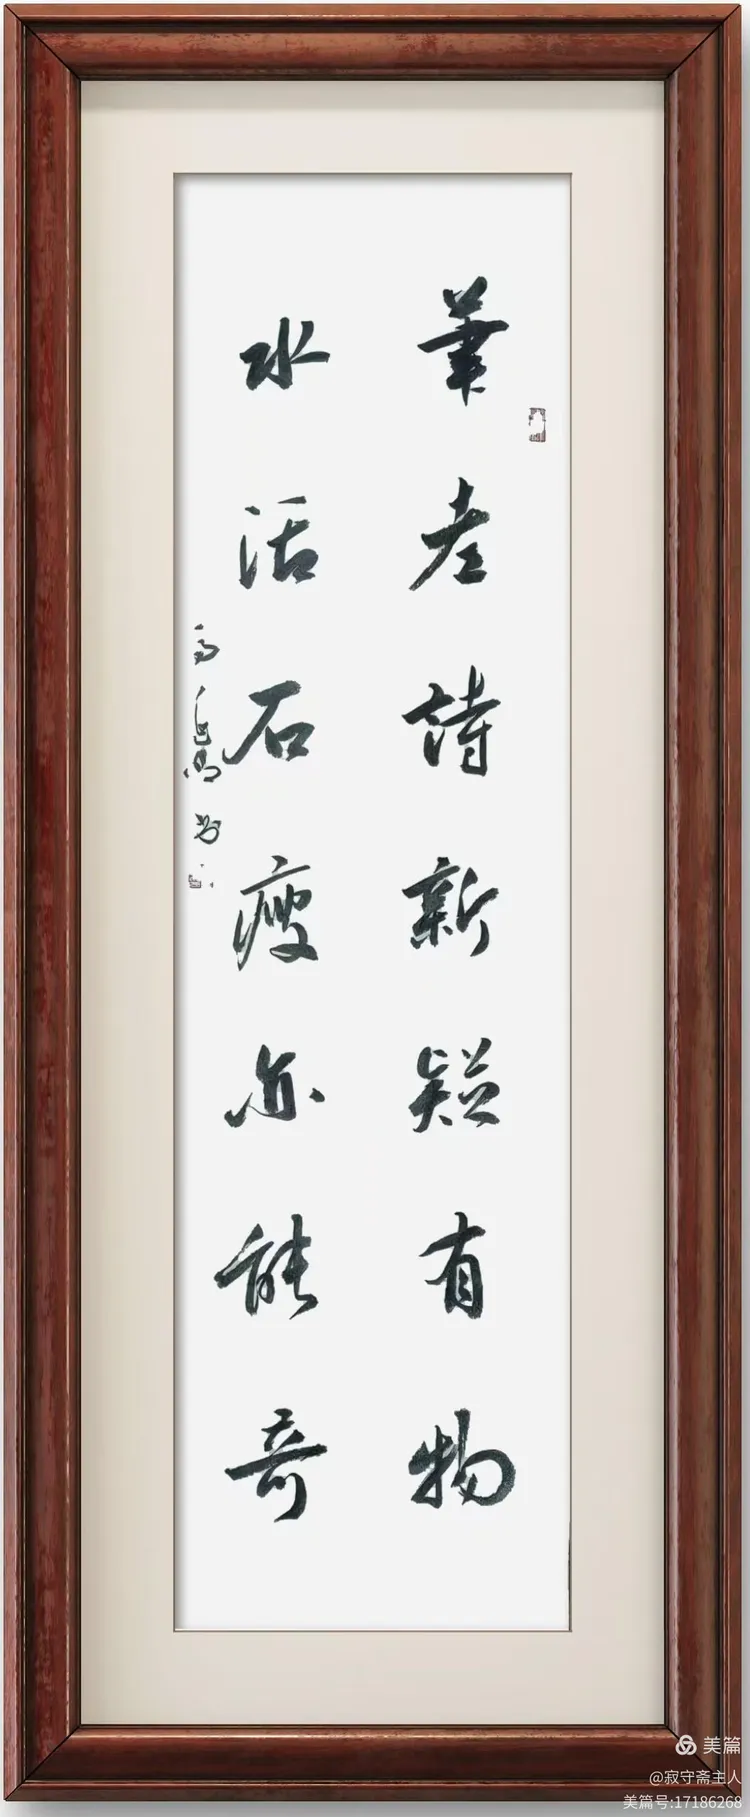 筆老詩新疑有物
水活石瘦亦能奇
美篇
@寂守斋主人
美篇号:17186268